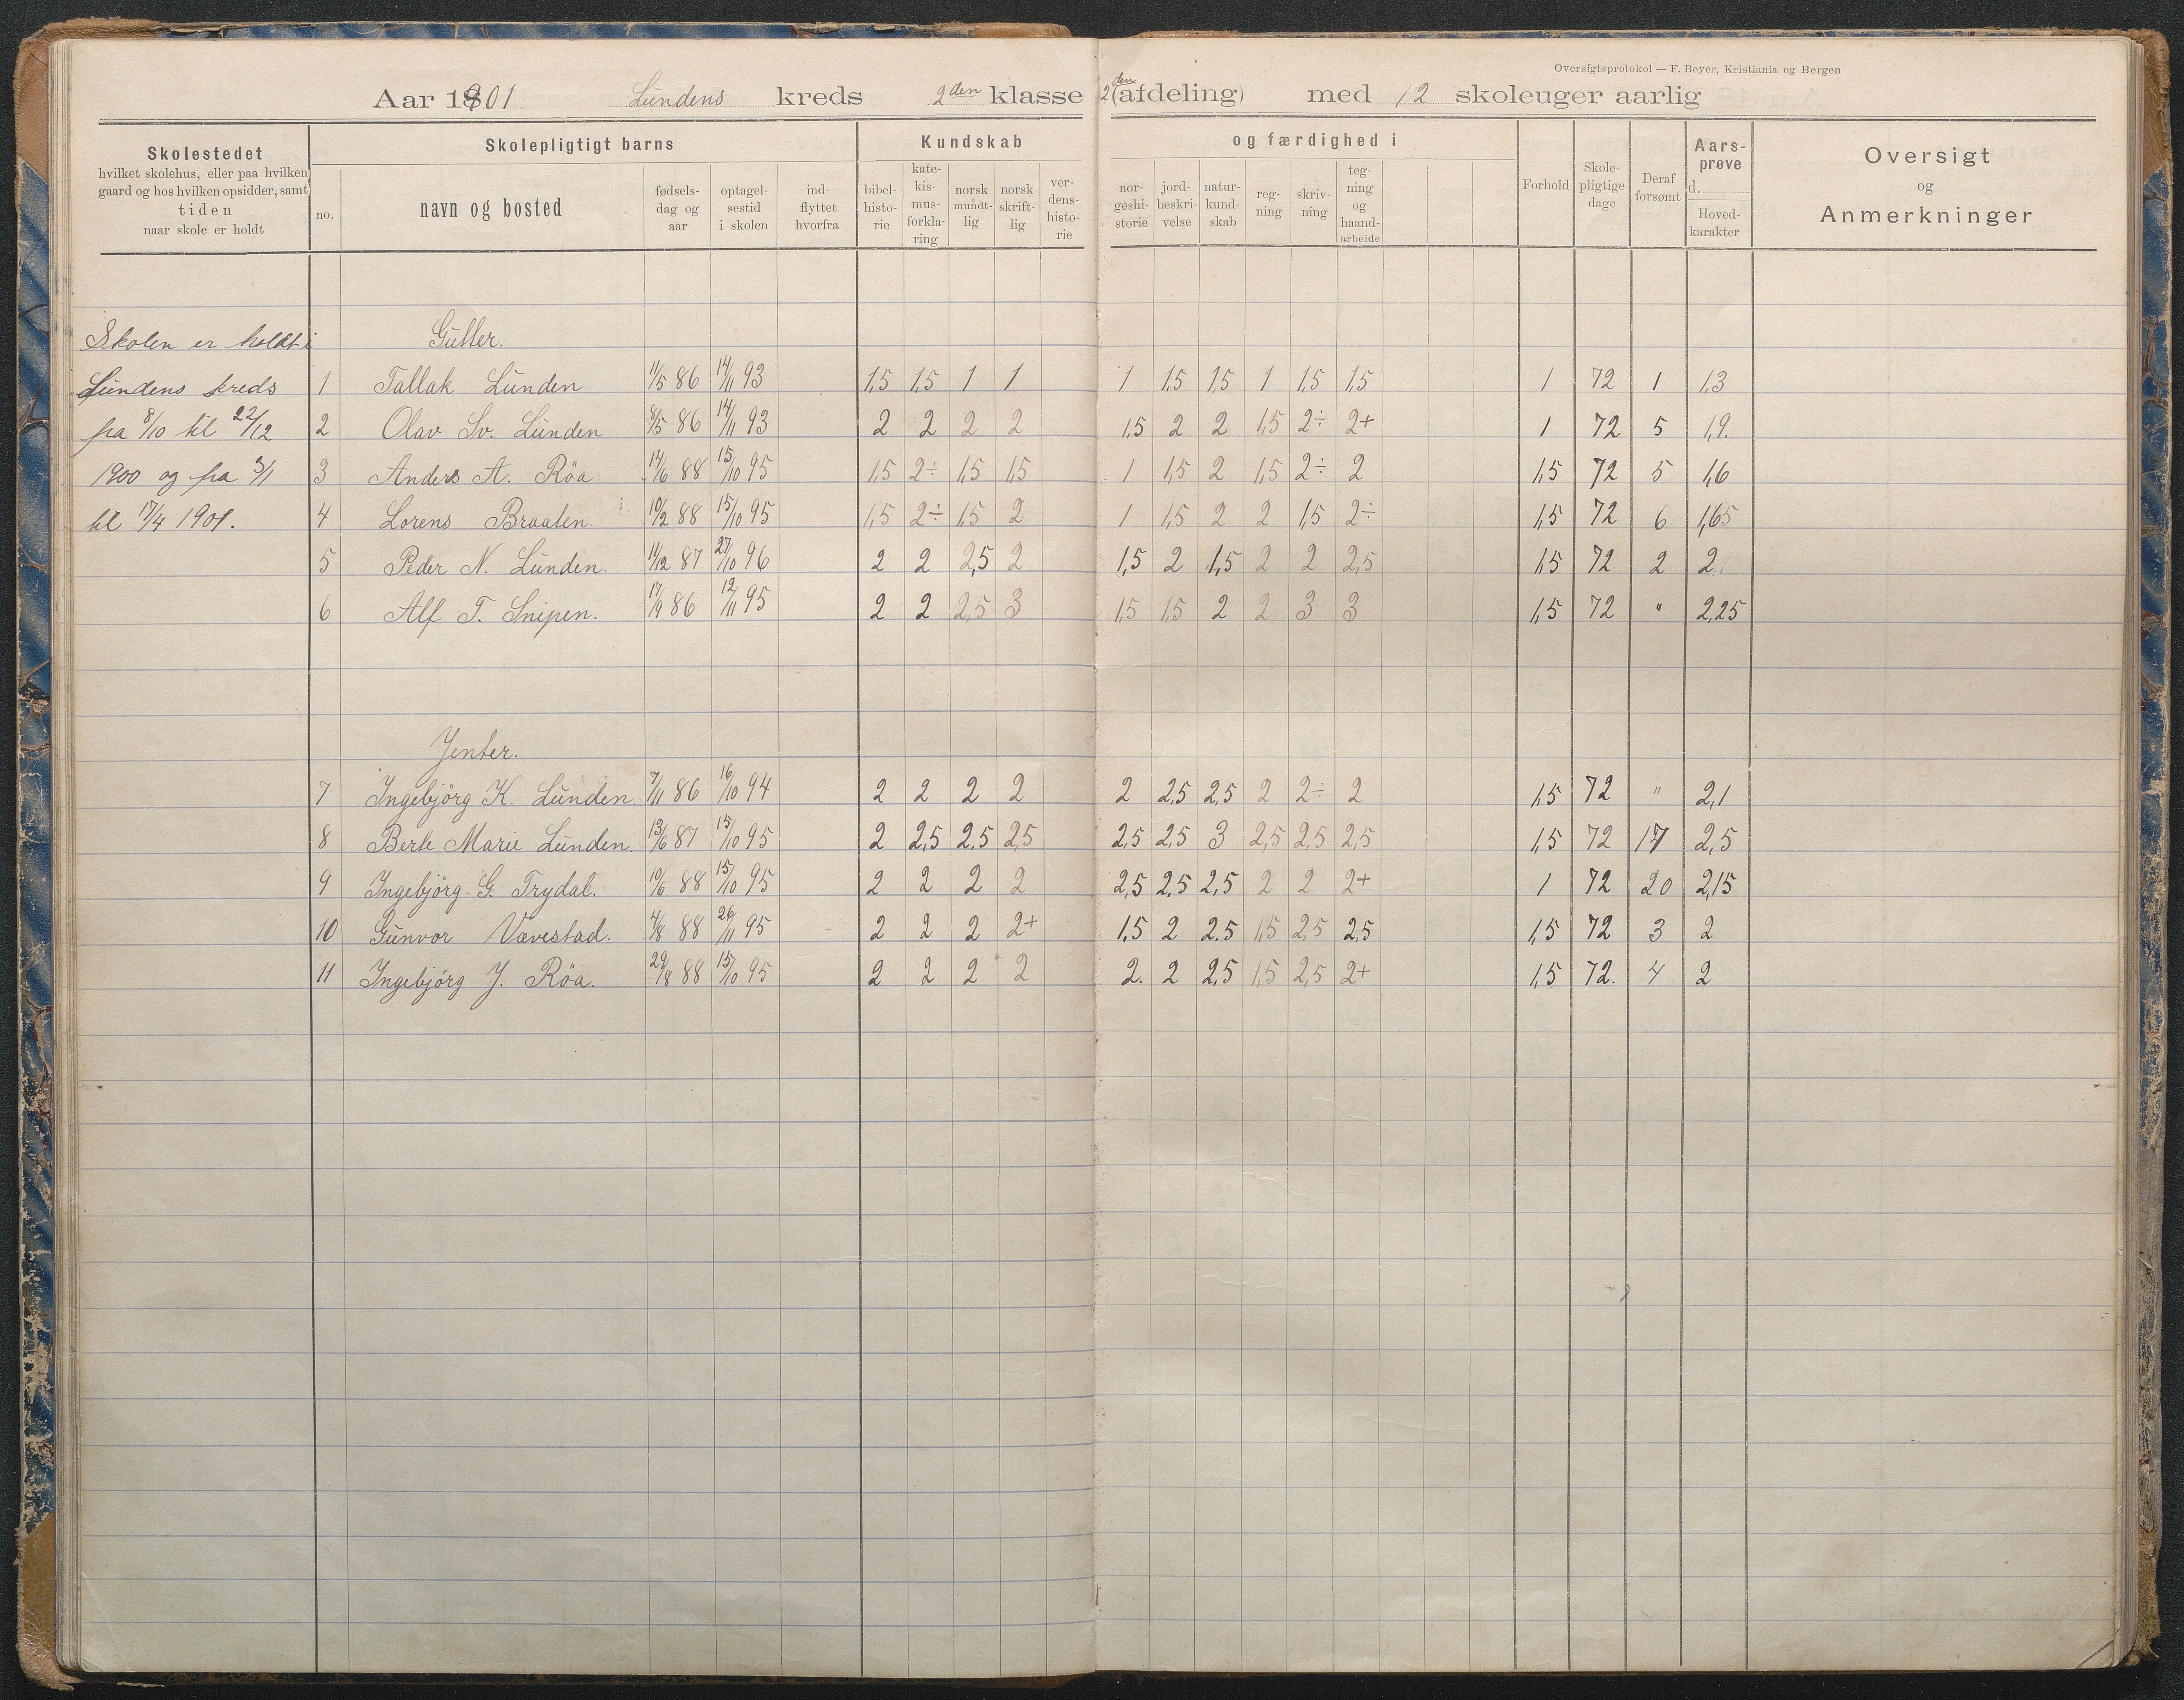 Oversigtsprotokol — F. Beyer, Kristiania og Bergen
Aar 1901 Lundens kreds 2den klasse 2den (afdeling) med 12 skoleuger aarlig
Skolestedet
hvilket skolehus, eller paa hvilken
gaard og hos hvilken opsidder, samt
tiden
naar skole er holdt
Skolepligtigt barns
no.
navn og bosted
fødsels-
dag og
aar
optagel-
sestid
i skolen
ind-
flyttet
hvorfra
Kundskab
bibel-
histo-
rie
kate-
kis-
mus-
forkla-
ring
norsk
mundt-
lig
norsk
skrift-
lig
ver-
dens-
histo-
rie
og færdighed i
nor-
geshi-
storie
jord-
beskri-
velse
natur-
kund-
skab
reg-
ning
skriv-
ning
teg-
ning
og
haand-
arbeide
Forhold
Skole-
pligtige
dage
Deraf
forsømt
Aars-
prøve
d.
Hoved-
karakter
Oversigt
og
Anmerkninger
Skolen er holdt i
Lundens kreds
fra 8/10 til 22/12
1900 og fra 3/1
til 17/4 1901.
Gutter.
1 Tallak Lunden 11/5 86 14/11 93 1,5 1,5 1 1 1 1,5 1,5 1 1,5 1,5 1 72 1 1,3
2 Olav Sv. Lunden 8/5 86 14/11 93 2 2 2 2 1,5 2 2 1,5 2÷ 2+ 1 72 5 1,9.
3 Anders A. Röa 14/6 88 15/10 95 1,5 2÷ 1,5 1,5 1 1,5 2 1,5 2÷ 2 1,5 72 5 1,6
4 Lorens Braaten. 10/2 88 15/10 95 1,5 2÷ 1,5 2 1 1,5 2 2 1,5 2÷ 1,5 72 6 1,65
5 Peder N. Lunden. 11/12 87 27/10 96 2 2 2,5 2 1,5 2 1,5 2 2 2,5 1,5 72 2 2
6 Alf T. Snipen. 17/9 86 12/11 95 2 2 2,5 3 1,5 1,5 2 2 3 3 1,5 72 " 2,25
Jenter.
7 Ingebjörg K. Lunden. 7/11 86 16/10 94 2 2 2 2 2 2,5 2,5 2 2÷ 2 1,5 72 " 2,1
8 Berte Marie Lunden. 13/6 87 15/10 95 2 2,5 2,5 2,5 2,5 2,5 3 2,5 2,5 2,5 1,5 72 17 2,5
9 Ingebjörg G. Trydal. 10/6 88 15/10 95 2 2 2 2 2,5 2,5 2,5 2 2 2+ 1 72 20 2,15
10 Gunvor Vævestad. 4/8 88 26/11 95 2 2 2 2+ 1.5 2 2.5 1,5 2,5 2,5 1,5 72 3 2
11 Ingebjörg J. Röa. 29/8 88 15/10 95 2 2 2 2 2. 2 2,5 1,5 2,5 2+ 1,5 72. 4 2